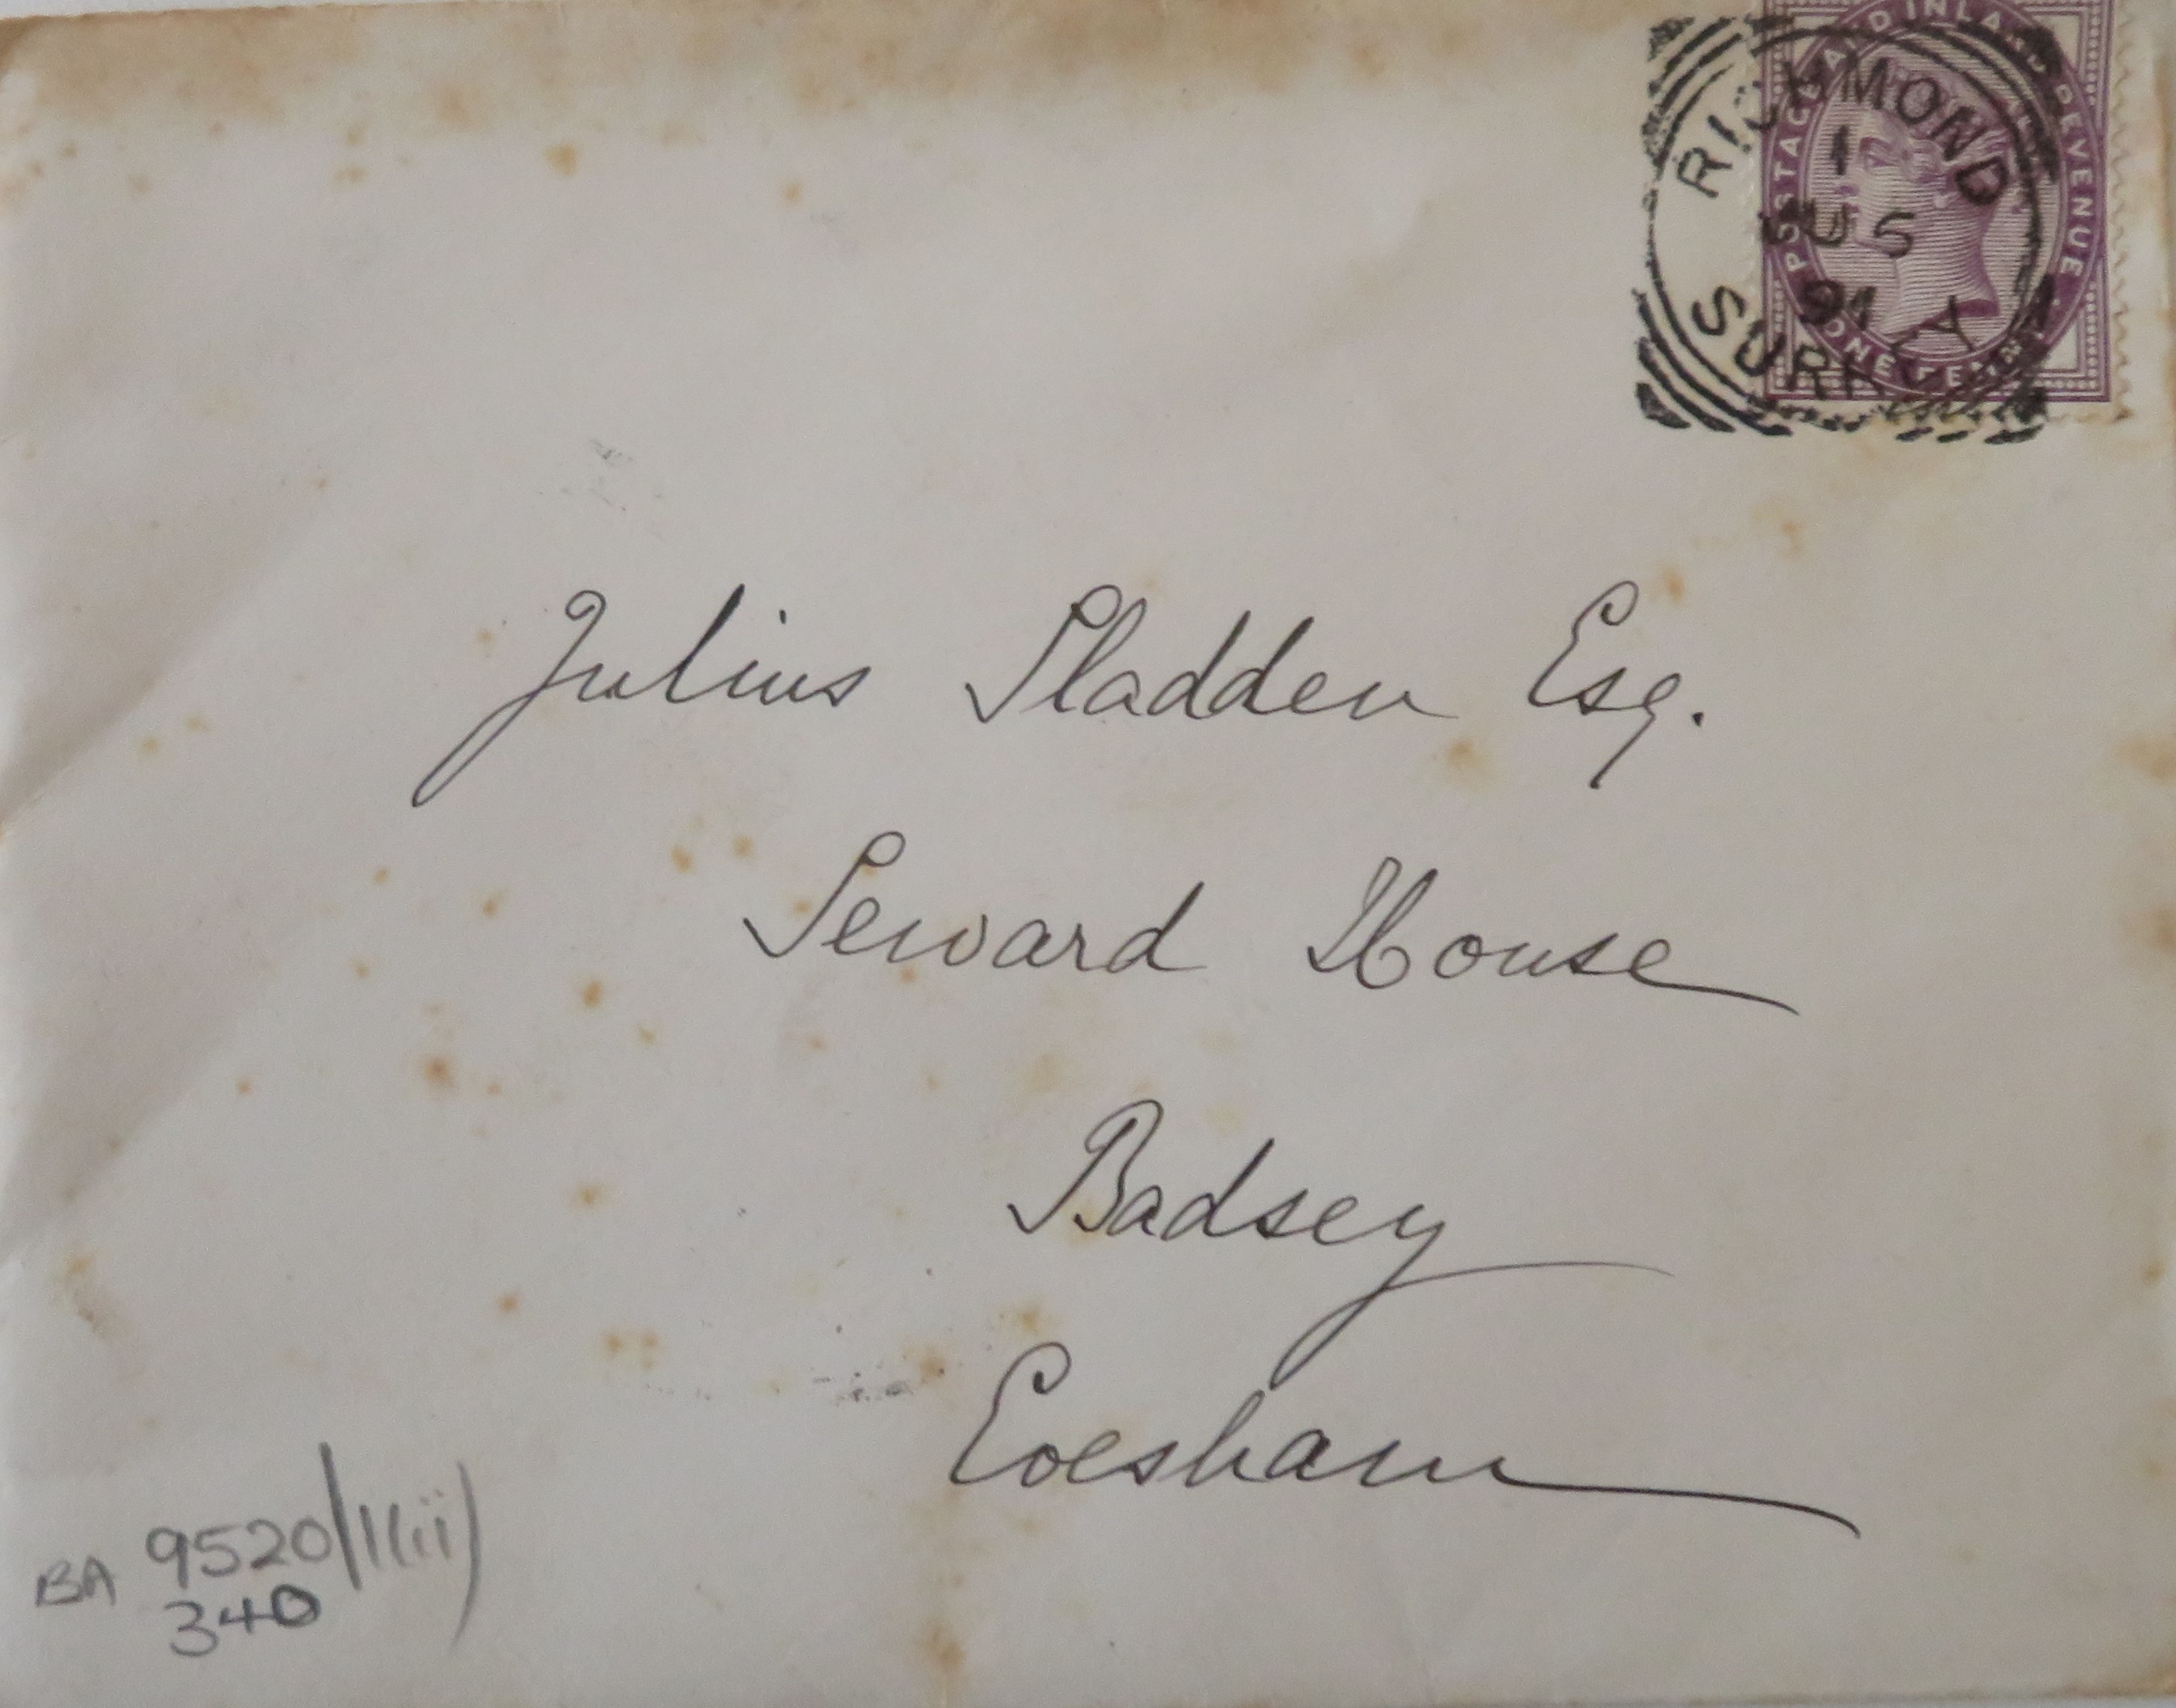 POSTAGE AND INLAND REVENUE
ONE PENNY
RICHMOND
1
5
91
SURREY
Julius Sladden Esq.
Seward House
Badsey
Evesham
BA 9520/1(ii)
340